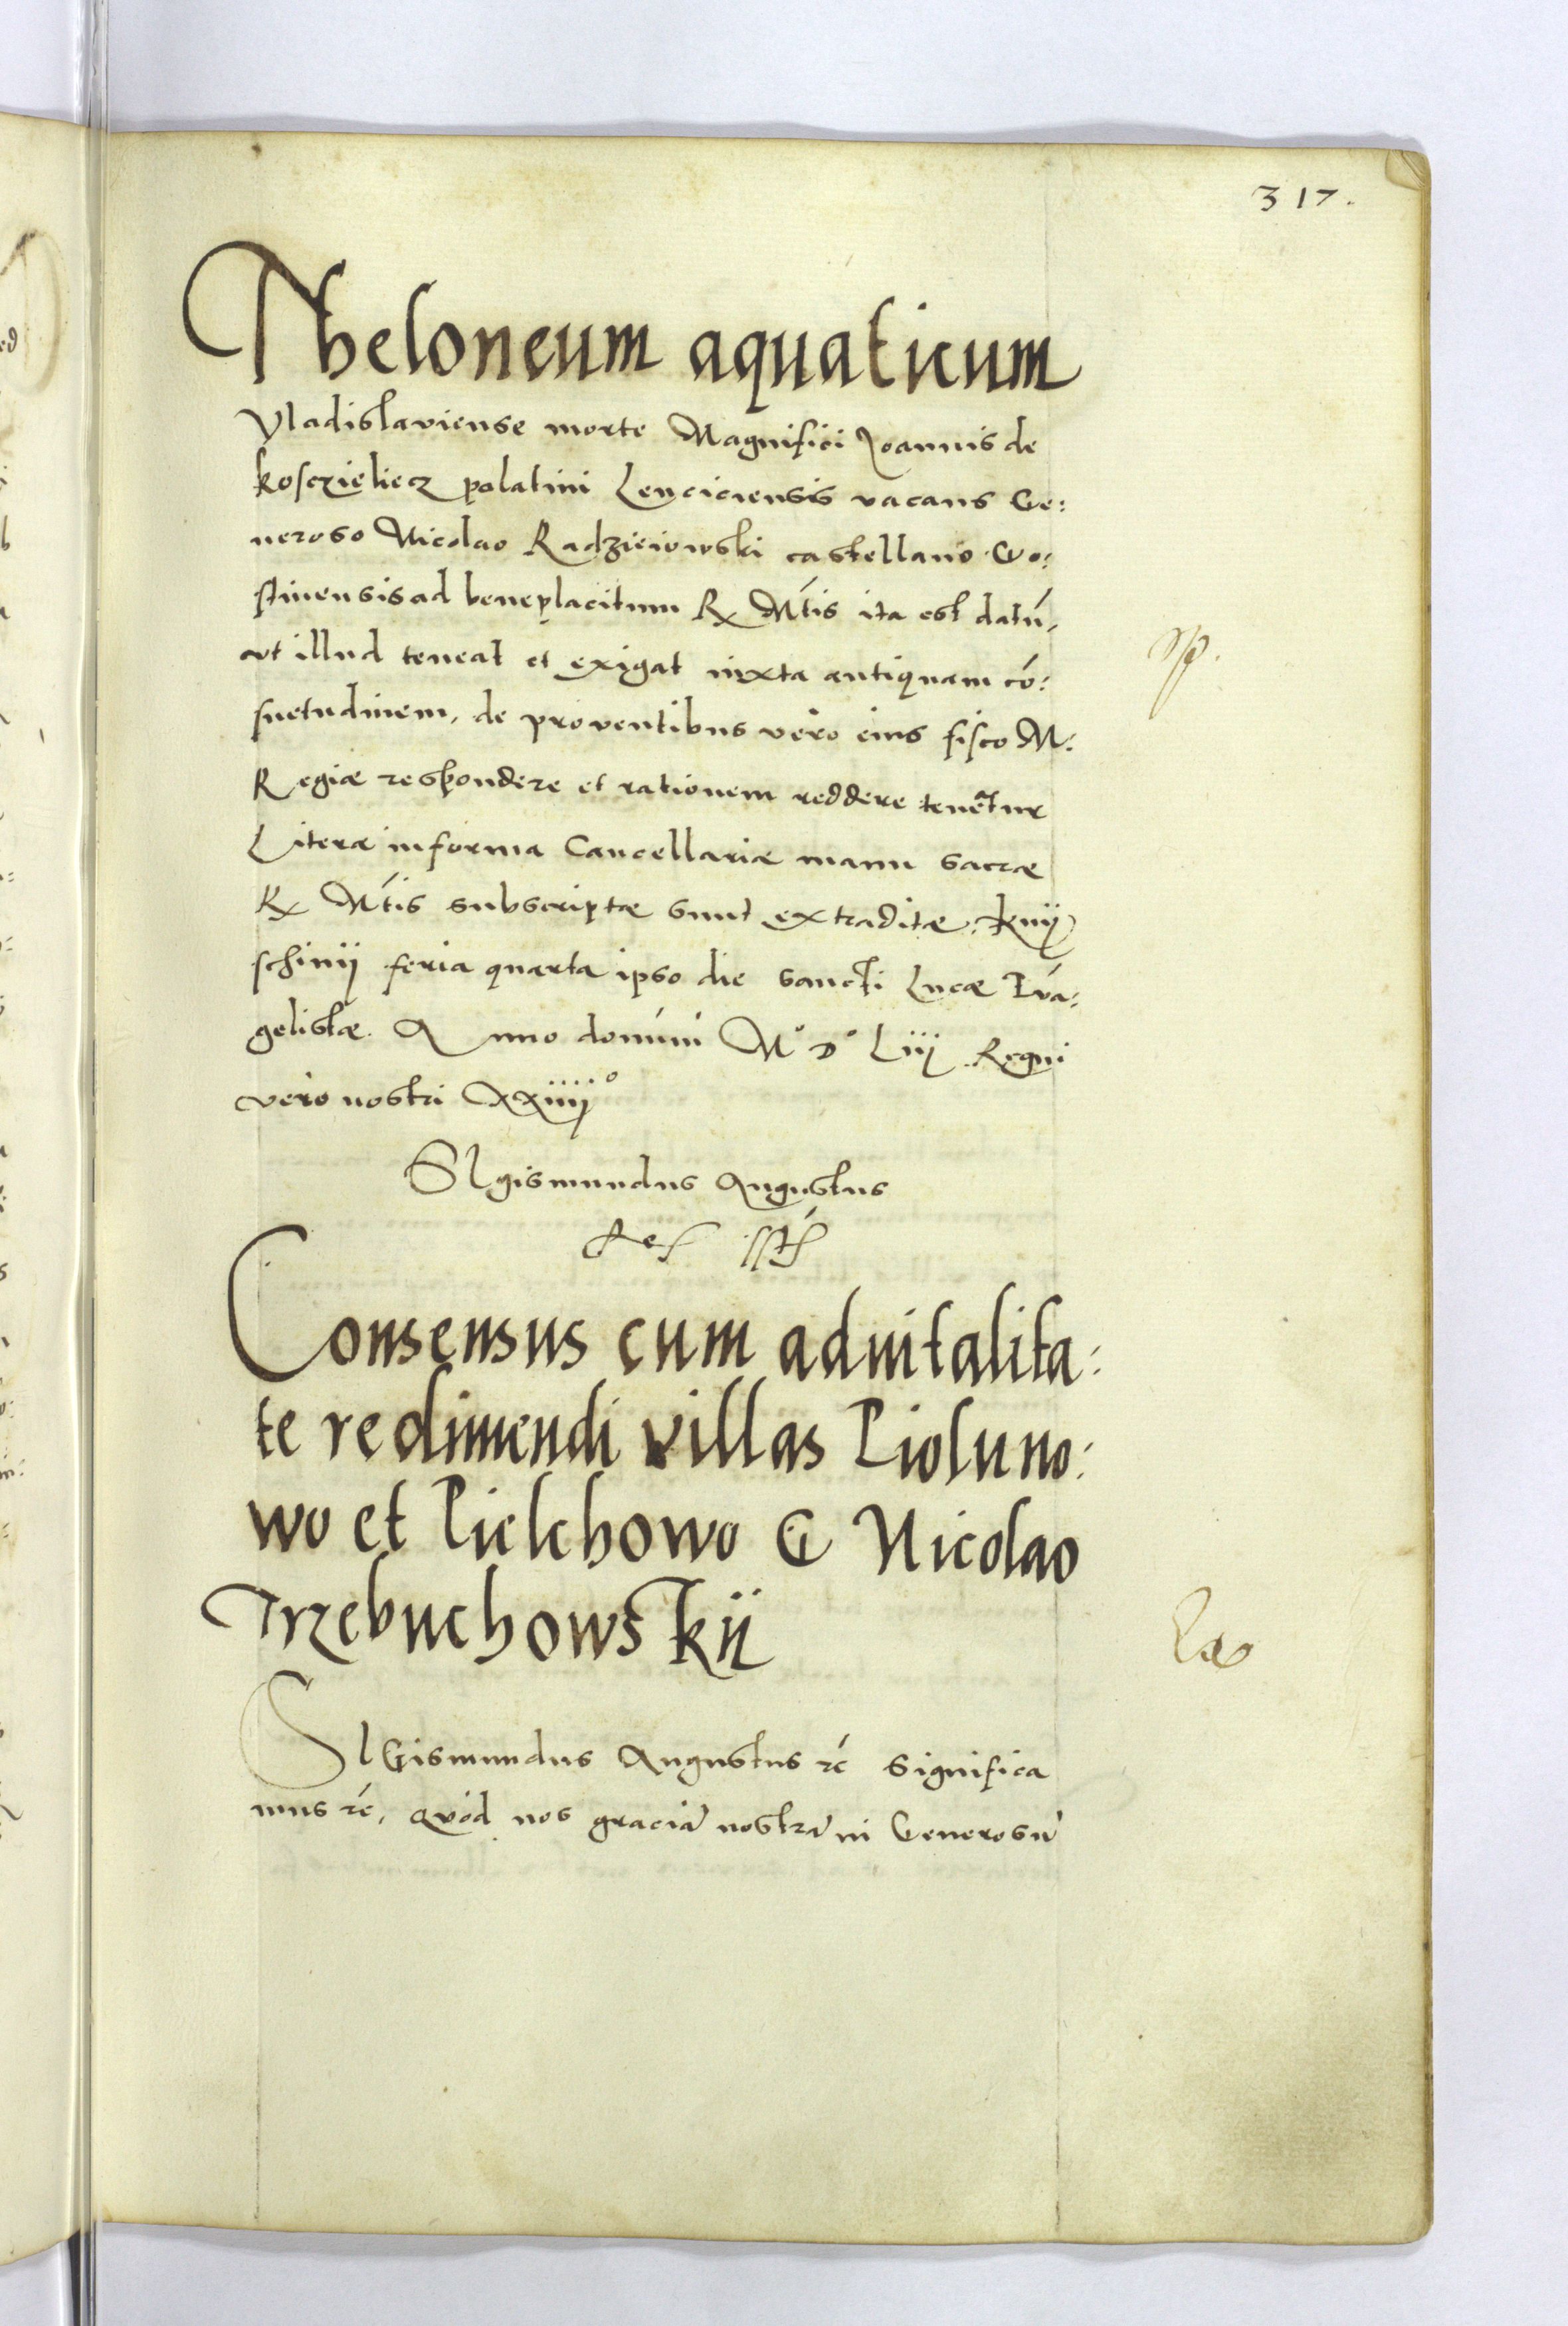 317.
Theloneum aquaticum
Vladislaviense morte Magnifici Joannis de
kosczieliecz palatini Lenciciensis vacans Ge:
neroso Nicolao Radzieiowski castellano Go:
stinensis ad beneplacitum Rx Mtis ita est datú,
ut illud teneat et exigat iuxta antiquam có:
suetudinem, de proventibus vero eius fisco M:
Regiæ respondere et rationem reddere tenetur
Literæ in forma Cancellariæ manu sacræ
Rx Mtis subscriptæ sunt extraditæ. Knij
schinij feria quarta ipso die sancti Lucæ Evá:
gelistæ. Anno domini M° D° Liij Regni
vero nostri XXiiij°
SIgismundus Augustus
Rex sst
Consensus cum advitalita:
te redimendi villas Pioluno:
wo et Pielchowo G Nicolao
Trzebuchowskij
SIGismundus Augustus rc̃ Significa
mus rc̃, quod nos graciã nostrã in Generosũ